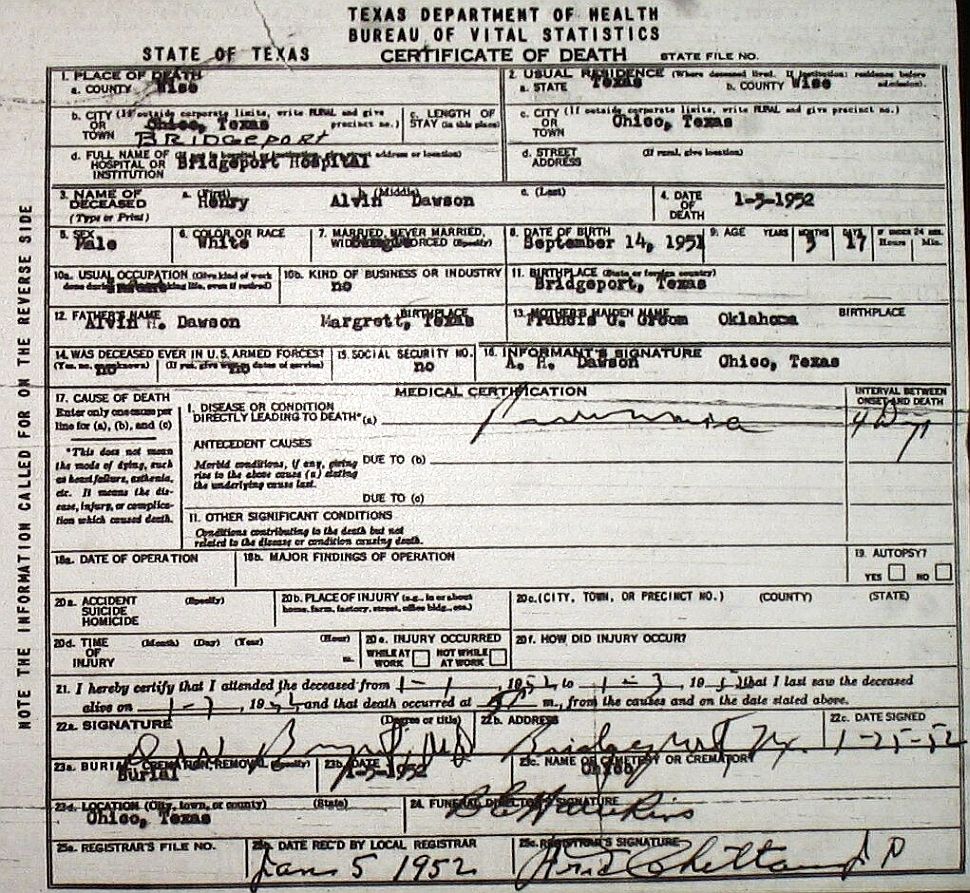 TEXAS DEPARTMENT OF HEALTH
BUREAU OF VITAL STATISTICS
STATE OF TEXAS CERTIFICATE OF DEATH STATE FILE NO.
1. PLACE OF DEATH
a. COUNTY Wise
2. USUAL RESIDENCE (Where deceased lived. If institution: residence before admission).
a. STATE Texas b. COUNTY Wise
b. CITY (If outside corporate limits, write RURAL and give precinct no.)
OR
TOWN Chico, Texas
BRIDGEPORT
c. LENGTH OF
STAY (in this place)
c. CITY (If outside corporate limits, write RURAL and give precinct no.)
OR
TOWN Chico, Texas
d. FULL NAME OF
HOSPITAL OR
INSTITUTION Bridgeport Hospital
d. STREET (If rural, give location)
ADDRESS
3. NAME OF
DECEASED
(Type or Print)
a. (First) b. (Middle) c. (Last)
Henry Alvin Dawson
4. DATE
OF
DEATH 1-3-1952
5. SEX
Male
6. COLOR OR RACE
White
7. MARRIED, NEVER MARRIED,
WIDOWED, DIVORCED (Specify)
Single
8. DATE OF BIRTH
September 14, 1951
9. AGE YEARS MONTHS DAYS IF UNDER 24 HRS.
Hours Min.
3 17
10a. USUAL OCCUPATION (Give kind of work
done during most of working life, even if retired)
10b. KIND OF BUSINESS OR INDUSTRY
no
11. BIRTHPLACE (State or foreign country)
Bridgeport, Texas
12. FATHER'S NAME BIRTHPLACE
Alvin H. Dawson Margrett, Texas
13. MOTHER'S MAIDEN NAME BIRTHPLACE
Francis G. Groom Oklahoma
14. WAS DECEASED EVER IN U.S. ARMED FORCES?
(Yes, no, or unknown) (If yes, give war or dates of service)
no no
15. SOCIAL SECURITY NO.
no
16. INFORMANT'S SIGNATURE
A. H. Dawson Chico, Texas
MEDICAL CERTIFICATION
INTERVAL BETWEEN
ONSET AND DEATH
17. CAUSE OF DEATH
Enter only one cause per
line for (a), (b), and (c)
*This does not mean
the mode of dying, such
as heart failure, asthenia,
etc. It means the dis-
ease, injury, or complica-
tion which caused death.
I. DISEASE OR CONDITION
DIRECTLY LEADING TO DEATH* (a) Pneumonia 4 Days
ANTECEDENT CAUSES
Morbid conditions, if any, giving
rise to the above cause (a) stating
the underlying cause last.
DUE TO (b)
DUE TO (c)
II. OTHER SIGNIFICANT CONDITIONS
Conditions contributing to the death but not
related to the disease or condition causing death.
18a. DATE OF OPERATION
18b. MAJOR FINDINGS OF OPERATION
19. AUTOPSY?
YES NO
20a. ACCIDENT (Specify)
SUICIDE
HOMICIDE
20b. PLACE OF INJURY (e.g., in or about
home, farm, factory, street, office bldg., etc.)
20c. (CITY, TOWN, OR PRECINCT NO.) (COUNTY) (STATE)
20d. TIME (Month) (Day) (Year) (Hour)
OF
INJURY m.
20e. INJURY OCCURRED
WHILE AT WORK NOT WHILE AT WORK
20f. HOW DID INJURY OCCUR?
21. I hereby certify that I attended the deceased from 1-1, 1952, to 1-3, 1952, that I last saw the deceased
alive on 1-3, 1952, and that death occurred at m., from the causes and on the date stated above.
22a. SIGNATURE (Degree or title)
MD
22b. ADDRESS
Bridgeport Tx.
22c. DATE SIGNED
1-25-52
23a. BURIAL, CREMATION, REMOVAL (Specify)
Burial
23b. DATE
1-3-1952
23c. NAME OF CEMETERY OR CREMATORY
Chico
23d. LOCATION (City, town, or county) (State)
Chico, Texas
24. FUNERAL DIRECTOR'S SIGNATURE
Hawkins
25a. REGISTRAR'S FILE NO.
25b. DATE REC'D BY LOCAL REGISTRAR
Jan 5 1952
25c. REGISTRAR'S SIGNATURE
NOTE THE INFORMATION CALLED FOR ON THE REVERSE SIDE